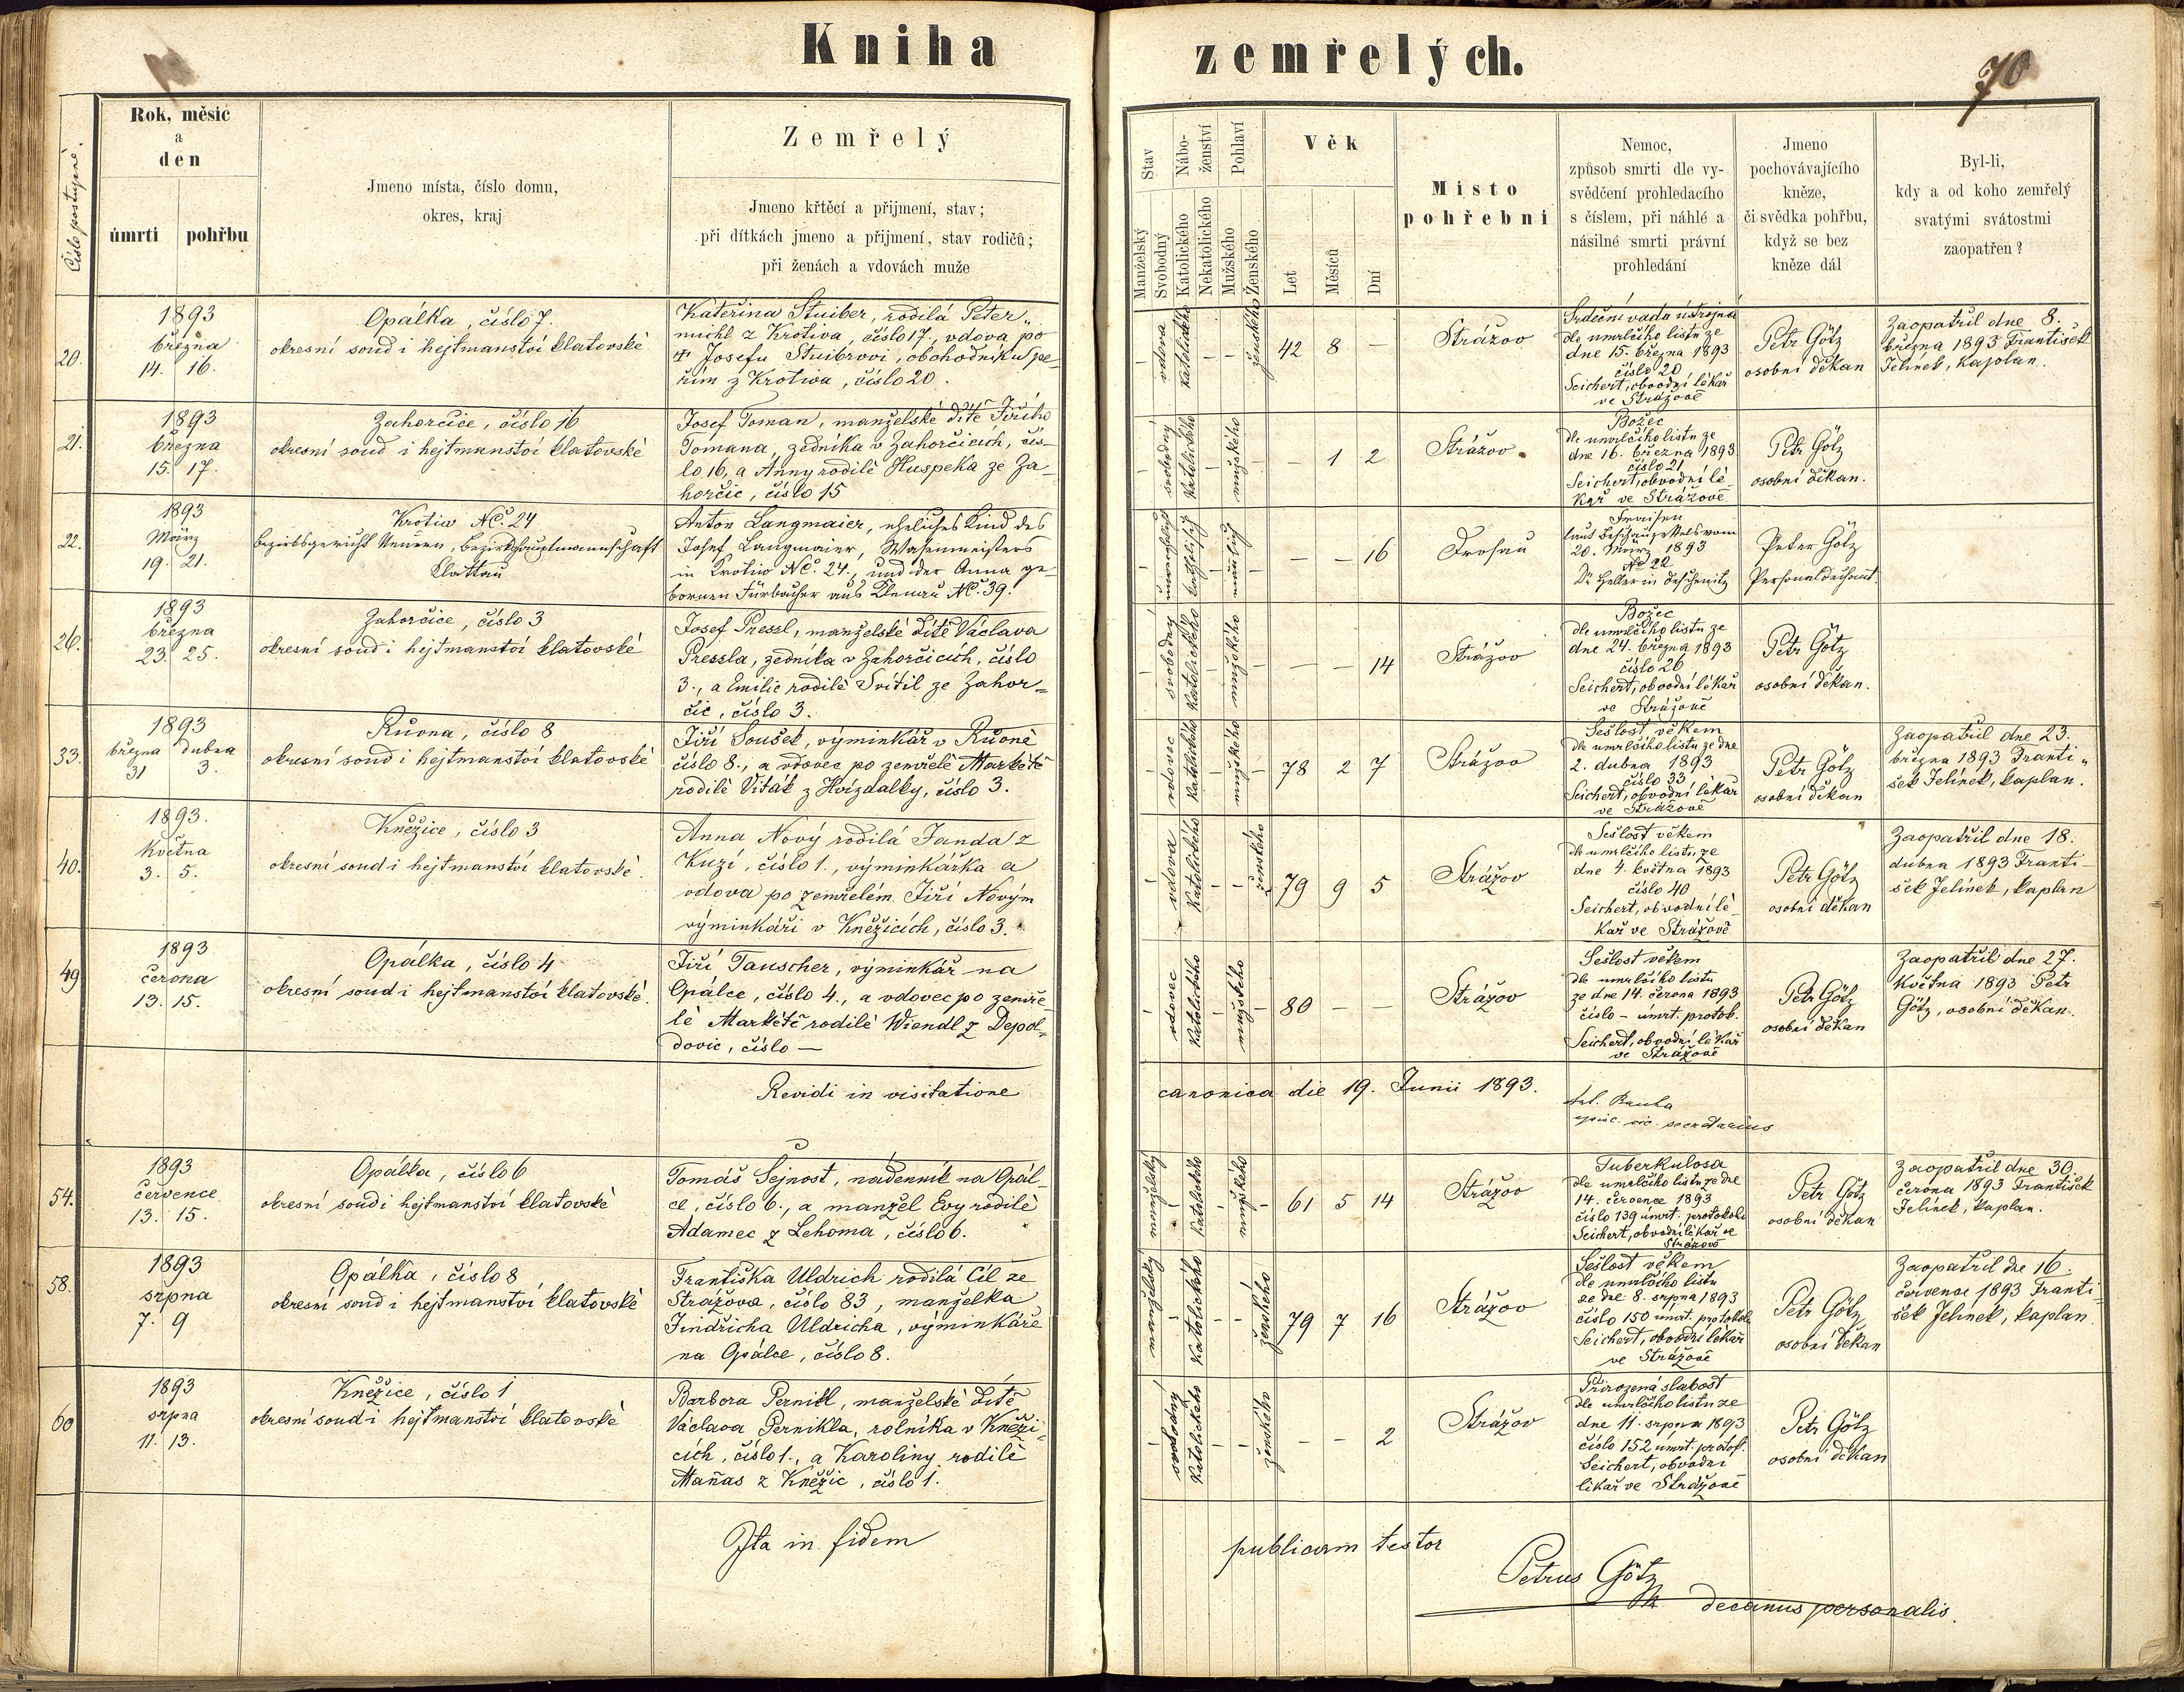 Kniha zemřelých.
70
Číslo postupné.
Rok, měsíc
a
den
úmrtí
pohřbu
Jmeno místa, číslo domu,
okres, kraj
Zemřelý
Jmeno křtěcí a přijmení, stav;
při dítkách jmeno a přijmení, stav rodičů;
při ženách a vdovách muže
Stav
Manželský
Svobodný
Nábo-
ženství
Katolického
Nekatolického
Pohlaví
Mužského
Ženského
Věk
Let
Měsíců
Dní
Místo
pohřební
Nemoc,
způsob smrti dle vy-
svědčení prohledacího
s číslem, při náhlé a
násilné smrti právní
prohledání
Jmeno
pochovávajícího
kněze,
či svědka pohřbu,
když se bez
kněze dál
Byl-li,
kdy a od koho zemřelý
svatými svátostmi
zaopatřen?
20.
1893
března
14. 16.
Opálka, číslo 7.
okresní soud i hejtmanství klatovské
Kateřina Stuiber, rodilá Peter„
michl z Krotiva, číslo 17, vdova po
✠ Josefu Stuibrovi, obchodníku pe-
řím z Krotiva, číslo 20.
vdova
katolického
ženského
42 8 —
Strážov
Srdeční vada ústrojná
dle umrlčího listu ze
dne 15. března 1893
číslo 20
Seichert, obvodní lékař
ve Strážově
Petr Götz
osobní děkan
Zaopatřil dne 8.
března 1893 František
Jelínek, kaplan.
21.
1893
března
15. 17.
Zahorčice, číslo 16
okresní soud i hejtmanství klatovské
Josef Toman, manželské dítě Jiřího
Tomana, zedníka v Zahorčicích, čís-
lo 16, a Anny rodilé Huspeka ze Za-
horčic, číslo 15
svobodný
katolického
mužského
— 1 2
Strážov.
Božec
dle umrlčího listu ze
dne 16. března 1893
číslo 21
Seichert, obvodní lé-
kař ve Strážově
Petr Götz
osobní děkan.
22.
1893
März
19. 21.
Krotiw NC. 24
Bezirksgericht Neuern, Bezirkshauptmannschaft
Klattau
Anton Langmaier, eheliches Kind des
Josef Langmaier, Wasenmeisters
in Krotiw NC. 24., und der Anna ge-
bornen Fürbacher aus Klenau NC. 39.
katholisch
männlich
— — 16
Drosau
Fraisen
laut Beschauzettels vom
20. März 1893
No 22
Dr Heller in Deschenitz
Peter Götz
Personaldechant.
26.
1893
března
23. 25.
Zahorčice, číslo 3
okresní soud i hejtmanství klatovské
Josef Pressl, manželské dítě Václava
Pressla, zedníka v Zahorčicích, číslo
3., a Emilie rodilé Svítil ze Zahor-
čic, číslo 3.
svobodný
katolického
mužského
— — 14
Strážov
Božec
dle umrlčího listu ze
dne 24. března 1893
číslo 26
Seichert, obvodní lékař
ve Strážově
Petr Götz
osobní děkan.
33.
1893
března dubna
31 3.
Růvna, číslo 8
okresní soud i hejtmanství klatovské
Jiří Soušek, výminkář v Růvně
číslo 8., a vdovec po zemřelé Markétě
rodilé Viták z Hvízdalky, číslo 3.
vdovec
katolického
mužského
78 2 7
Strážov
Sešlost věkem
dle umrlčího listu ze dne
2. dubna 1893
číslo 33
Seichert, obvodní lékař
ve Strážově
Petr Götz
osobní děkan
Zaopatřil dne 23.
března 1893 Franti„
šek Jelínek, kaplan.
40.
1893.
května
3. 5.
Kněžice, číslo 3
okresní soud i hejtmanství klatovské.
Anna Nový rodilá Janda z
Kuzí, číslo 1., výminkářka a
vdova po zemřelém Jiří Novým
výminkáři v Kněžicích, číslo 3.
vdova
katolického
ženského
79 9 5
Strážov
Sešlost věkem
dle umrlčího listu ze
dne 4. května 1893
číslo 40
Seichert, obvodní lé-
kař ve Strážově
Petr Götz
osobní děkan
Zaopatřil dne 18.
dubna 1893 Franti-
šek Jelínek, kaplan
49
1893
června
13. 15.
Opálka, číslo 4
okresní soud i hejtmanství klatovské.
Jiří Tauscher, výminkář na
Opálce, číslo 4., a vdovec po zemře-
lé Markétě rodilé Wiendl z Depol-
dovic, číslo —
vdovec
katolického
mužského
80 — —
Strážov
Sešlost věkem
dle umrlčího listu
ze dne 14. června 1893
číslo – úmrt. protok.
Seichert, obvodní lékař
ve Strážově
Petr Götz
osobní děkan
Zaopatřil dne 27.
května 1893 Petr
Götz, osobní děkan.
Revidi in visitatione canonica die 19. Junii 1893.
secretarius
54.
1893
července
13. 15.
Opálka, číslo 6
okresní soud i hejtmanství klatovské
Tomáš Sejnost, nádenník na Opál-
ce, číslo 6., a manžel Evy rodilé
Adamec z Lehoma, číslo 6.
manželský
katolického
mužského
61 5 14
Strážov
Tuberkulosa
dle umrlčího listu ze dne
14. července 1893
číslo 139 úmrt. protokolu
Seichert, obvodní lékař ve
Strážově
Petr Götz
osobní děkan
Zaopatřil dne 30.
června 1893 František
Jelínek, kaplan.
58.
1893
srpna
7. 9
Opálka, číslo 8
okresní soud i hejtmanství klatovské
Františka Uldrich rodilá Cíl ze
Strážova, číslo 83, manželka
Jindřicha Uldricha, výminkáře
na Opálce, číslo 8.
manželský
katolického
ženského
79 7 16
Strážov
Sešlost věkem
dle umrlčího listu
ze dne 8. srpna 1893
číslo 150 úmrt. protokolu
Seichert, obvodní lékař
ve Strážově
Petr Götz
osobní děkan
Zaopatřil dne 16.
července 1893 Franti-
šek Jelínek, kaplan.
60
1893
srpna
11. 13.
Kněžice, číslo 1
okresní soud i hejtmanství klatovské
Barbora Pernikl, manželské dítě
Václava Pernikla, rolníka v Kněži-
cích, číslo 1., a Karoliny rodilé
Maňas z Kněžic, číslo 1.
svobodný
katolického
ženského
— — 2
Strážov
Přirozená slabost
dle umrlčího listu ze
dne 11. srpna 1893
číslo 152 úmrt. protok.
Seichert, obvodní
lékař ve Strážově
Petr Götz
osobní děkan
Ita in fidem publicam testor
Petrus Götz
decanus personalis.